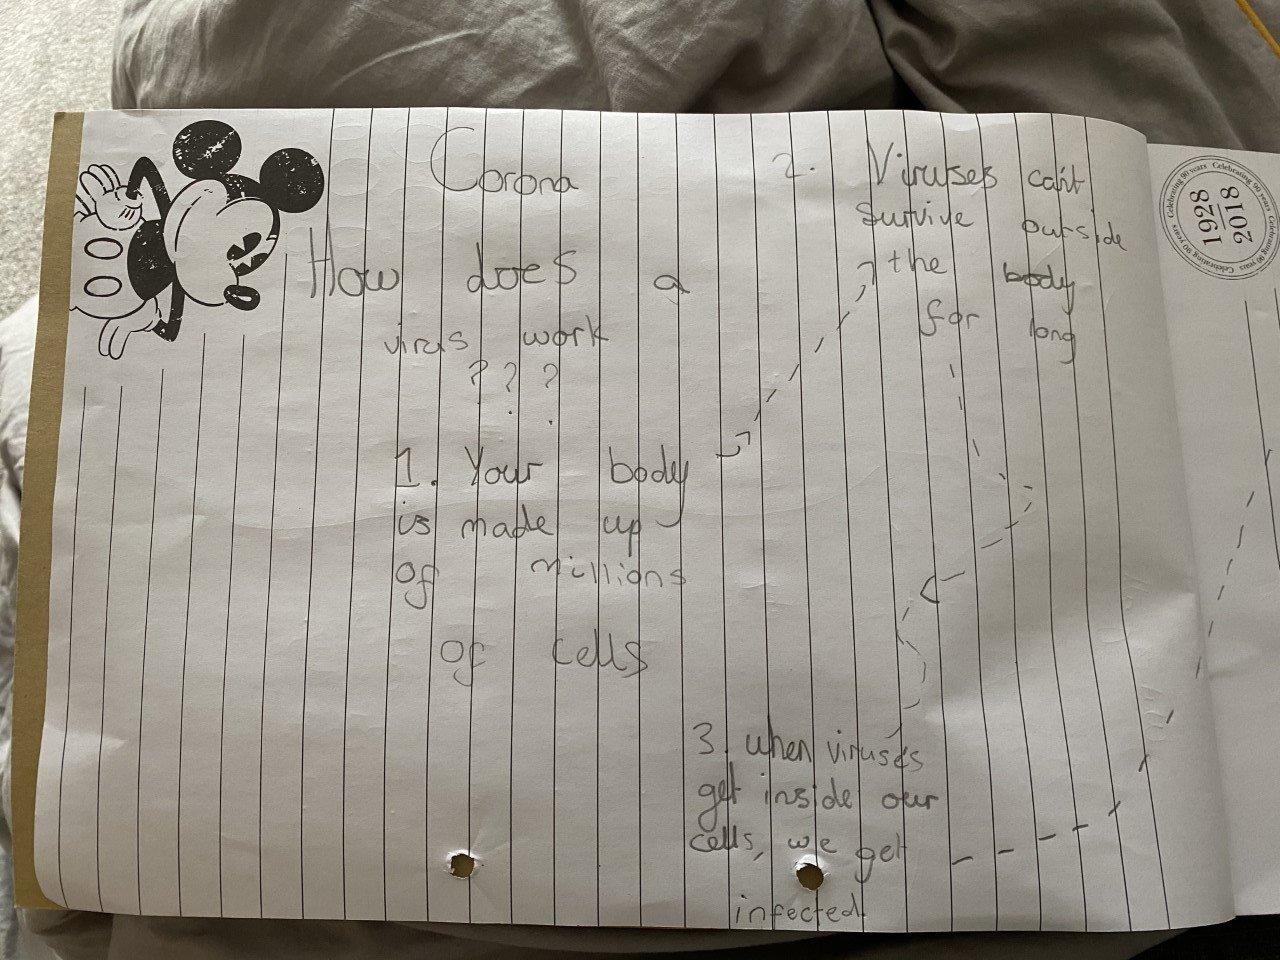 Corona
How does a
virus work
? ? ?
1. Your body
is made up
of millions
of cells
2. Viruses can't
survive outside
the body
for long
3. when viruses
get inside our
cells, we get
infected
Celebrating 90 years Celebrating 90 years Celebrating 90 years
1928
2018